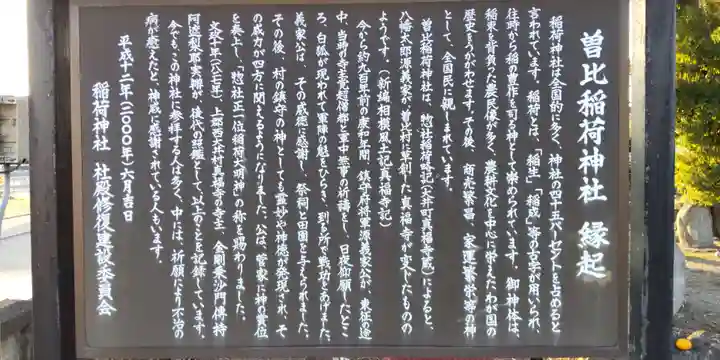 曽比稲荷神社 縁起
稲荷神社は全国的に多く、神社の四十五パーセントを占めると
言われています。稲荷とは、「稲生」「稲成」等の古字が用いられ、
往時から稲の豊作を司る神として崇められています。御神体は、
稲束を背負った農民像が多く、農耕文化を中心に栄えたわが国の
歴史をうかがわせます。その後、商売繁昌、家運繁栄等の神
として、全国民に親しまれています。
曽比稲荷神社は、惣社稲荷略記(大井町真福寺蔵)によると、
八幡太郎源義家が曽比村に草創した真福寺が変下したものの
ようです。(新編相模風土記真福寺の記)
今から約九百年前の康和年間、鎮守府将軍源義家公が、東征の途
中、当郷の寺主覚超僧都と軍中無事の祈祷をし、日夜仰願したとこ
ろ、白狐が現われて軍陣の魁をひらき、到る所で戦功をあげました。
義家公は、その威徳に感謝し、祭祠と田園を与えられました。
その後、村の鎮守の神としても霊妙や神徳が発現され、そ
の威力が四方に聞えるようになりました。公は、菅家に神の霊位
を奏上し、惣社正一位稲荷大明神の称を賜わりました。
文政十年(一八二七)、上郡西大井村真福寺の寺主、金剛乗沙門傳持
阿遮梨耶実繙が、後代の亀鑑として、以上のことを記録しています。
今でも、この神社に参拝する人は多く、中には、祈願により不治の
病が癒えたと、神威に感謝されている人もいます。
平成十二年(二〇〇〇年)六月吉日
稲荷神社 社殿修復建設委員会